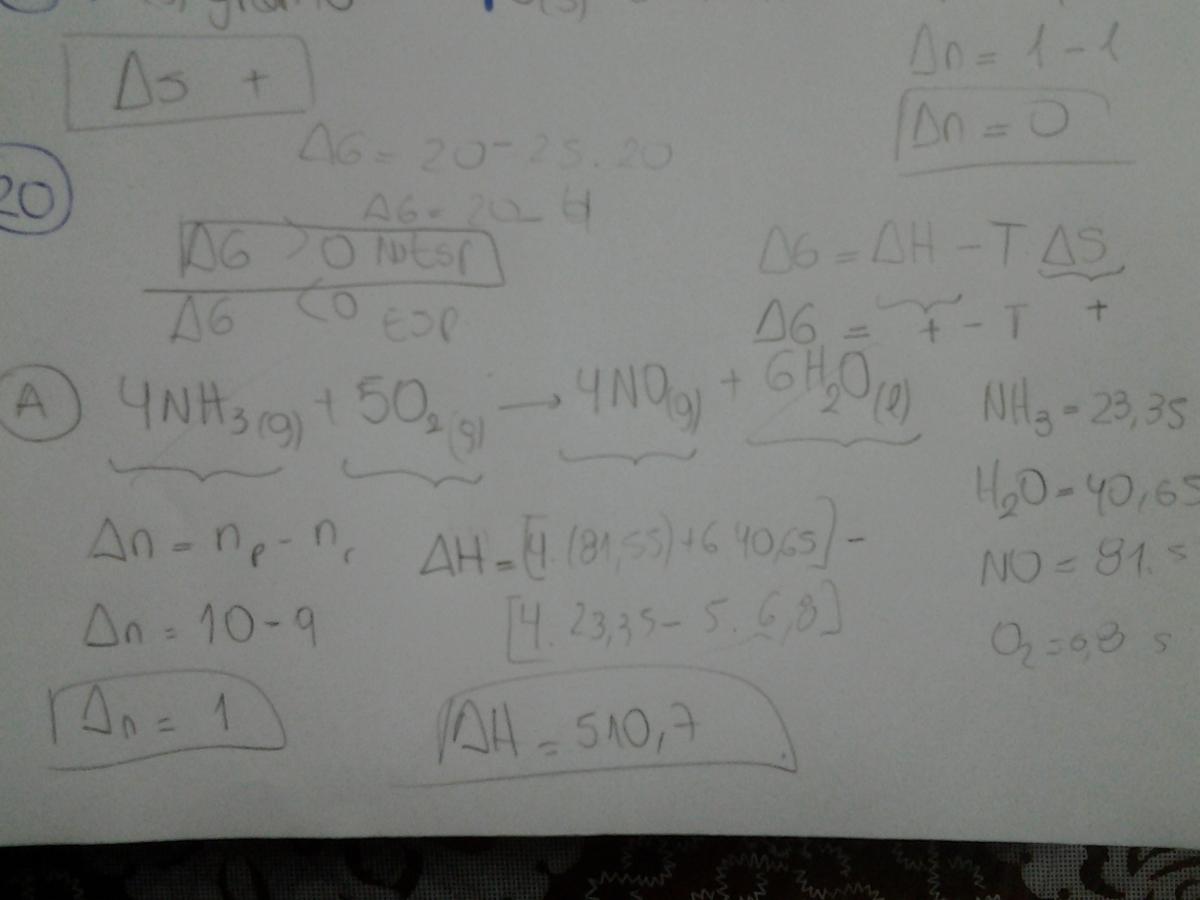 ΔS +
Δn = 1 - 1
Δn = 0
20
ΔG = 20 - 25 . 20
ΔG = 20 -
ΔG > 0 NotEsp
ΔG < 0 Esp
ΔG = ΔH - T ΔS
ΔG = + - T +
A 4NH₃(g) + 5O₂(g) → 4NO(g) + 6H₂O(l)
NH₃ = 23,35
H₂O = 40,65
NO = 81, s
O₂ = 6,8 s
Δn = nₚ - nᵣ
ΔH = [4. (81,55) + 6 40,65] -
[4. 23,35 - 5. 6,8]
Δn = 10 - 9
Δn = 1
ΔH = 510,7